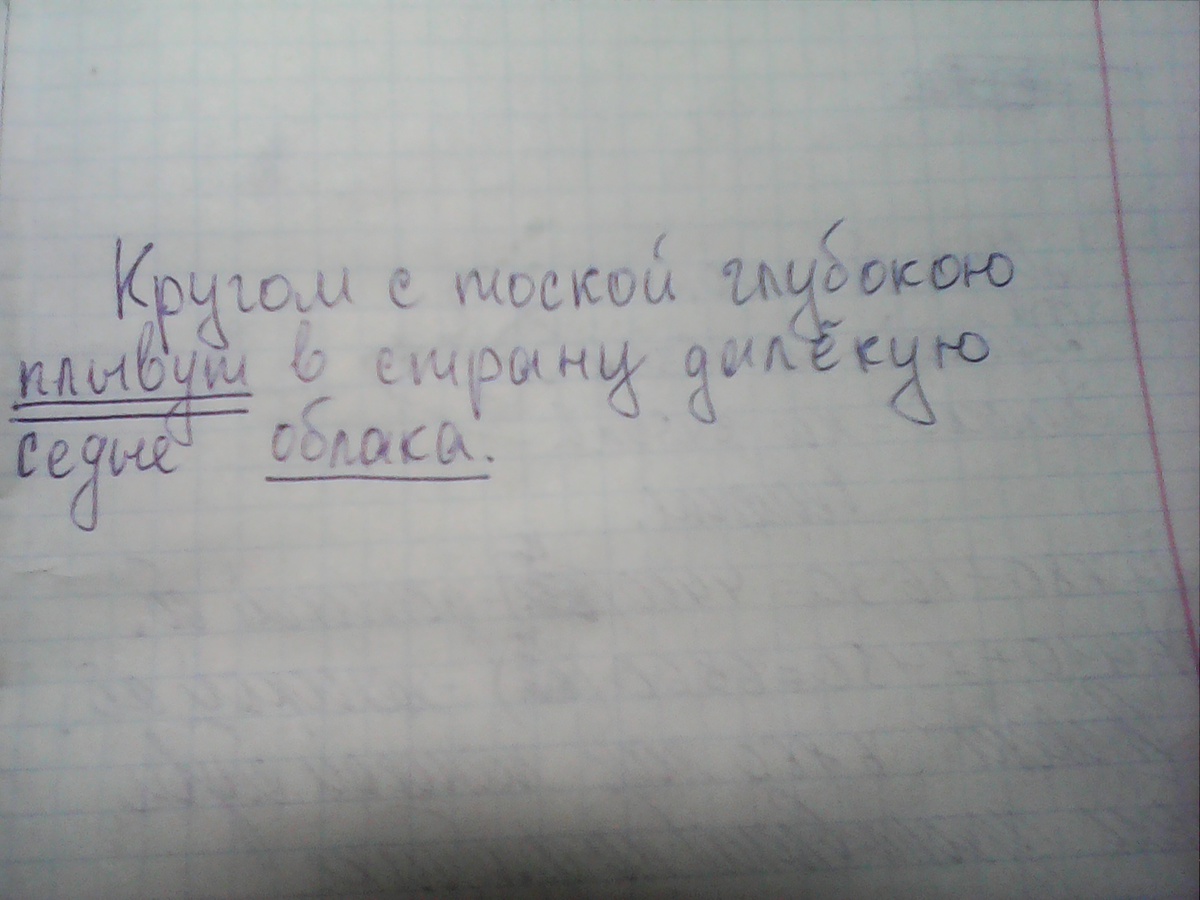 Кругом с тоской глубокою
плывут в страну далёкую
седые облака.